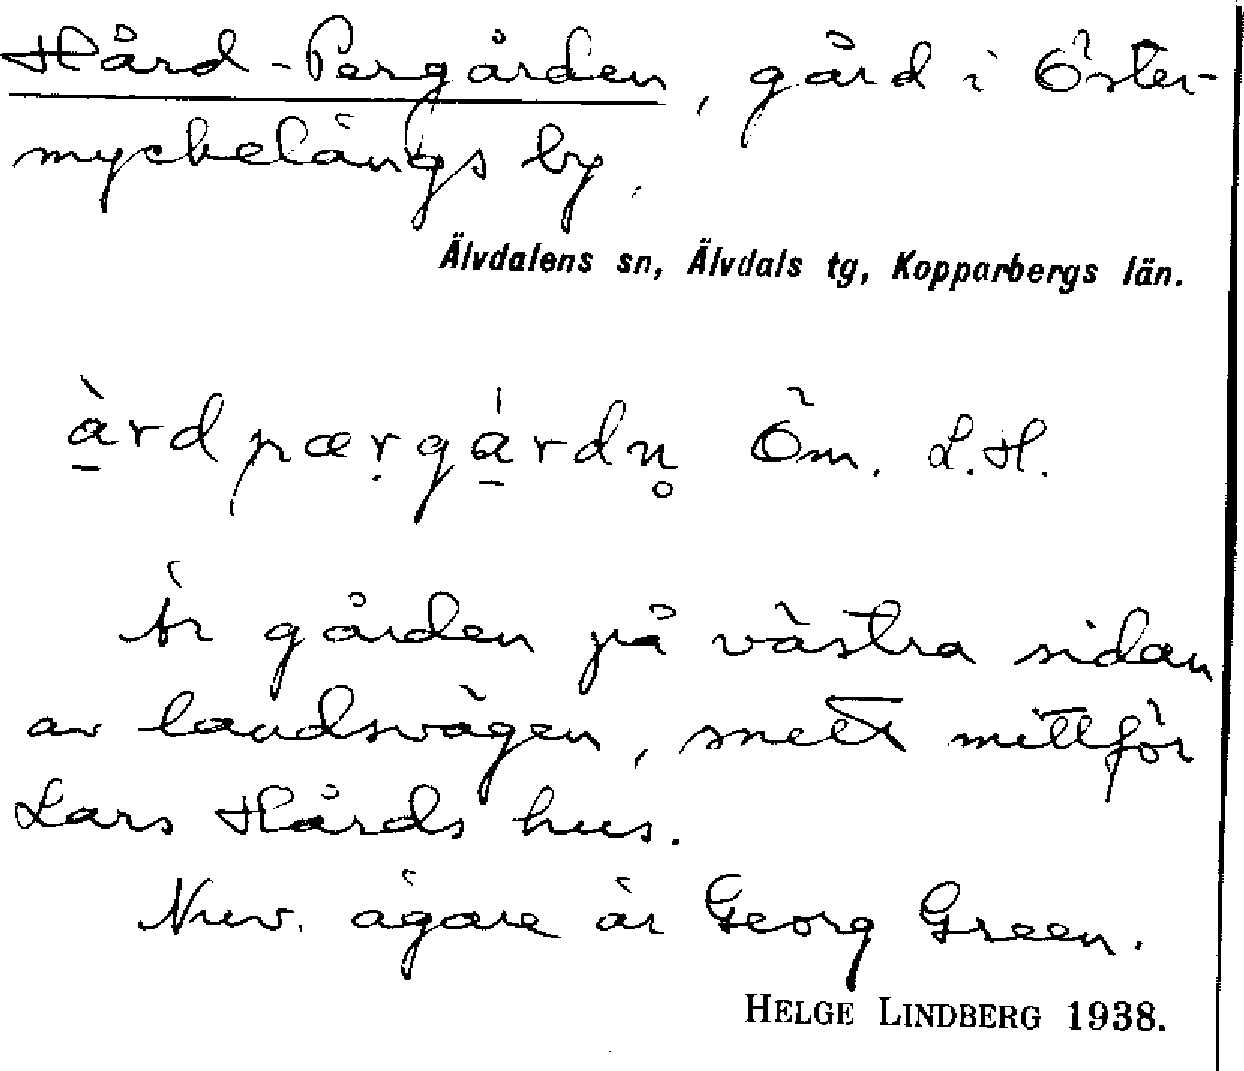 Hård-Pergården, gård i Öster-
myckelängs by.
Älvdalens sn, Älvdals tg, Kopparbergs län.
à̱rdpærg̣á̱rdn̥ Öm. L.H.
Är gården på västra sidan
av landsvägen, snett mittför
Lars Hårds hus.
Nuv. ägare är Georg Green.
HELGE LINDBERG 1938.